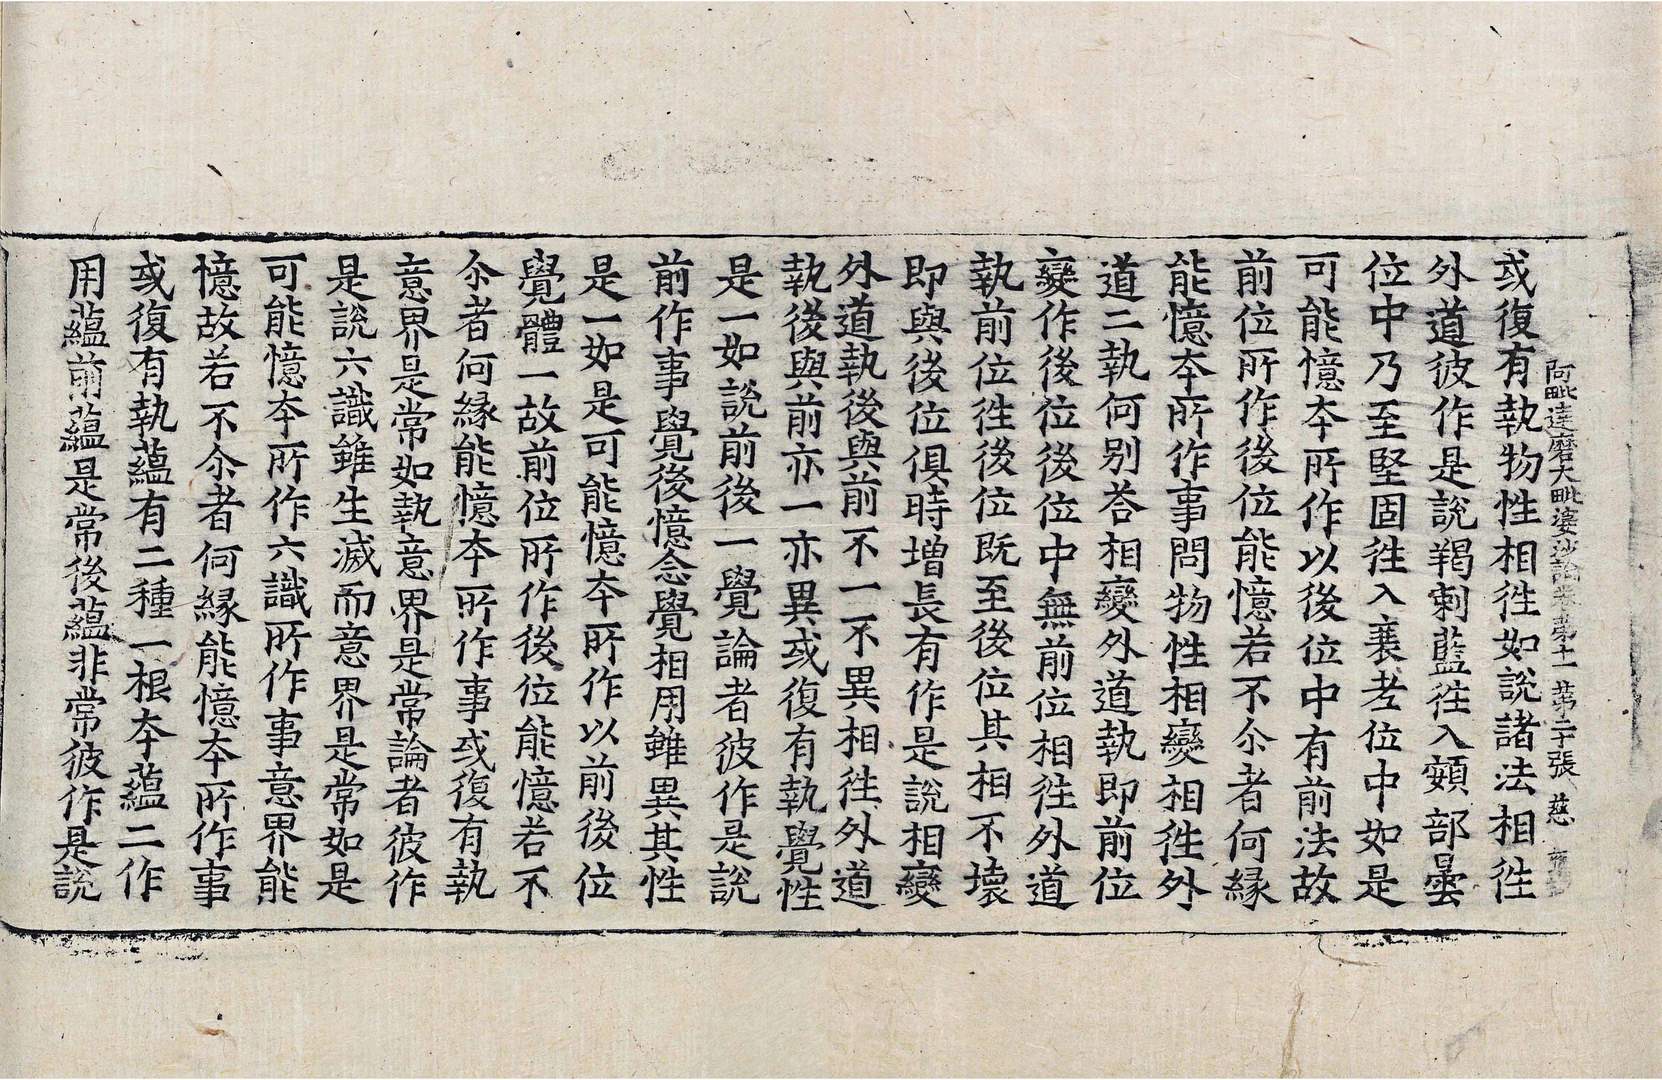 阿毗達磨大毗婆沙論卷第十一 第二十張 慈
或復有執物性相徃如說諸法相徃
外道彼作是說羯刺藍徃入頞部曇
位中乃至堅固徃入衰老位中如是
可能憶夲所作以後位中有前法故
前位所作後位能憶若不尒者何緣
能憶夲所作事問物性相變相徃外
道二執何別荅相變外道執即前位
變作後位後位中無前位相徃外道
執前位徃後位既至後位其相不壞
即與後位俱時增長有作是說相變
外道執後與前不一不異相徃外道
執後與前亦一亦異或復有執覺性
是一如說前後一覺論者彼作是說
前作事覺後憶念覺相用雖異其性
是一如是可能憶夲所作以前後位
覺體一故前位所作後位能憶若不
尒者何緣能憶夲所作事或復有執
意界是常如執意界是常論者彼作
是說六識雖生滅而意界是常如是
可能憶夲所作六識所作事意界能
憶故若不尒者何緣能憶夲所作事
或復有執蘊有二種一根夲蘊二作
用蘊前蘊是常後蘊非常彼作是說